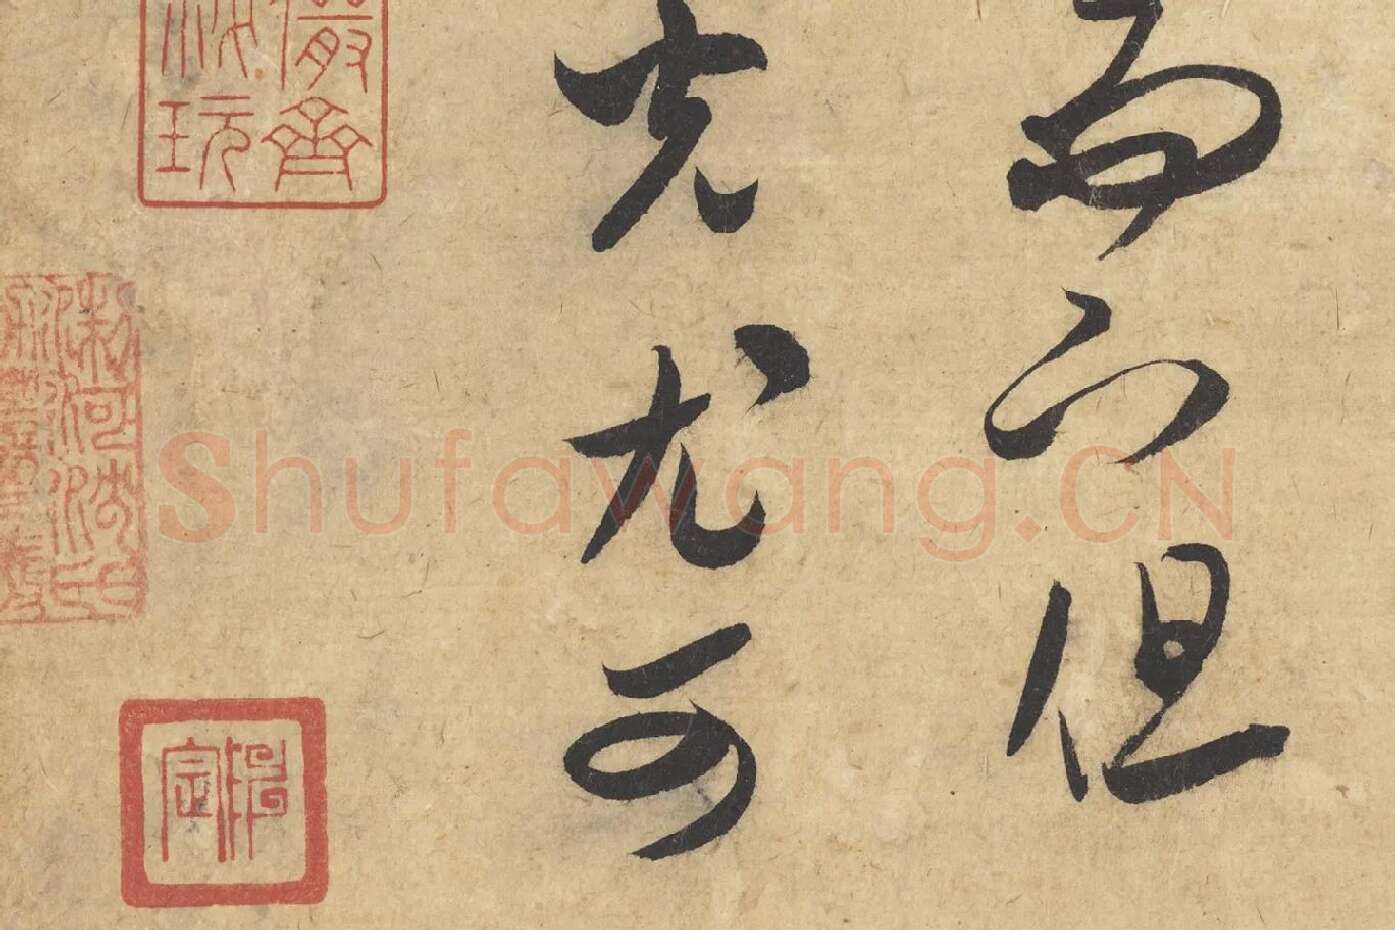 而下但
光尤可
儼齋
秘玩
Shufawang.CN